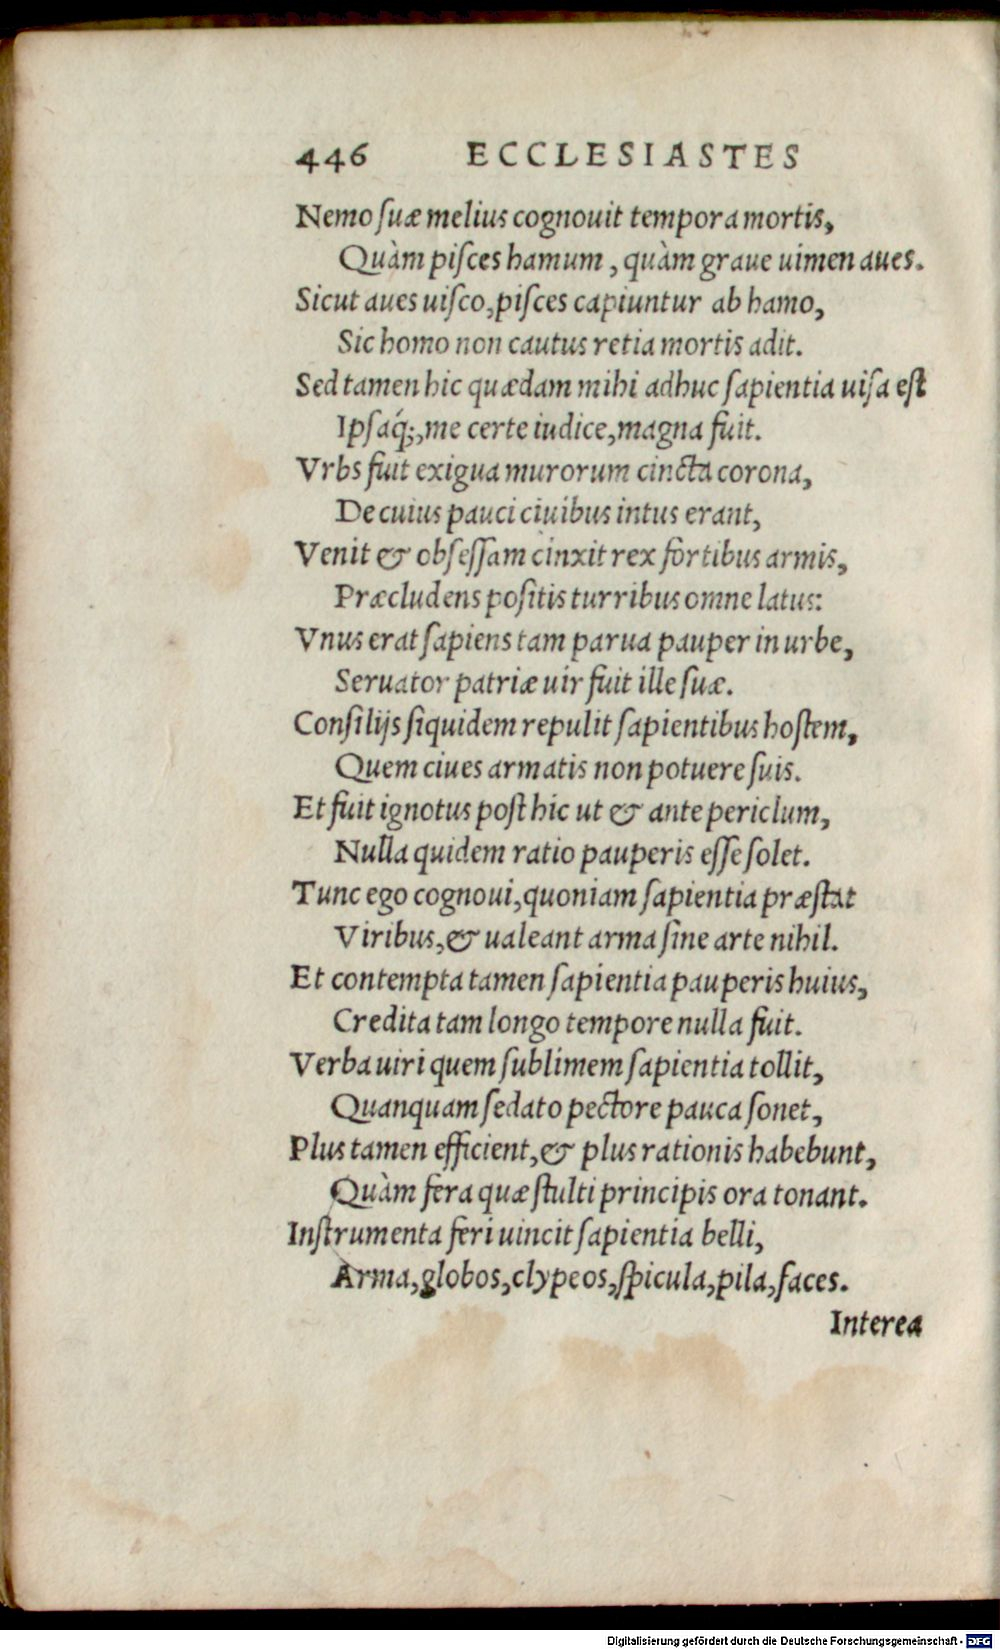 446 ECCLESIASTES
Nemo suæ melius cognouit tempora mortis,
Quàm pisces hamum, quàm graue uimen aues.
Sicut aues uisco, pisces capiuntur ab hamo,
Sic homo non cautus retia mortis adit.
Sed tamen hic quædam mihi adhuc sapientia uisa est
Ipsaq́;, me certe iudice, magna fuit.
Vrbs fuit exigua murorum cincta corona,
De cuius pauci ciuibus intus erant,
Venit & obsessam cinxit rex fortibus armis,
Præcludens positis turribus omne latus:
Vnus erat sapiens tam parua pauper in urbe,
Seruator patriæ uir fuit ille suæ.
Consilijs siquidem repulit sapientibus hostem,
Quem ciues armatis non potuere suis.
Et fuit ignotus post hic ut & ante periclum,
Nulla quidem ratio pauperis esse solet.
Tunc ego cognoui, quoniam sapientia præstat
Viribus, & ualeant arma sine arte nihil.
Et contempta tamen sapientia pauperis huius,
Credita tam longo tempore nulla fuit.
Verba uiri quem sublimem sapientia tollit,
Quanquam sedato pectore pauca sonet,
Plus tamen efficient, & plus rationis habebunt,
Quàm fera quæ stulti principis ora tonant.
Instrumenta feri uincit sapientia belli,
Arma, globos, clypeos, spicula, pila, faces.
Interea
Digitalisierung gefördert durch die Deutsche Forschungsgemeinschaft - DFG